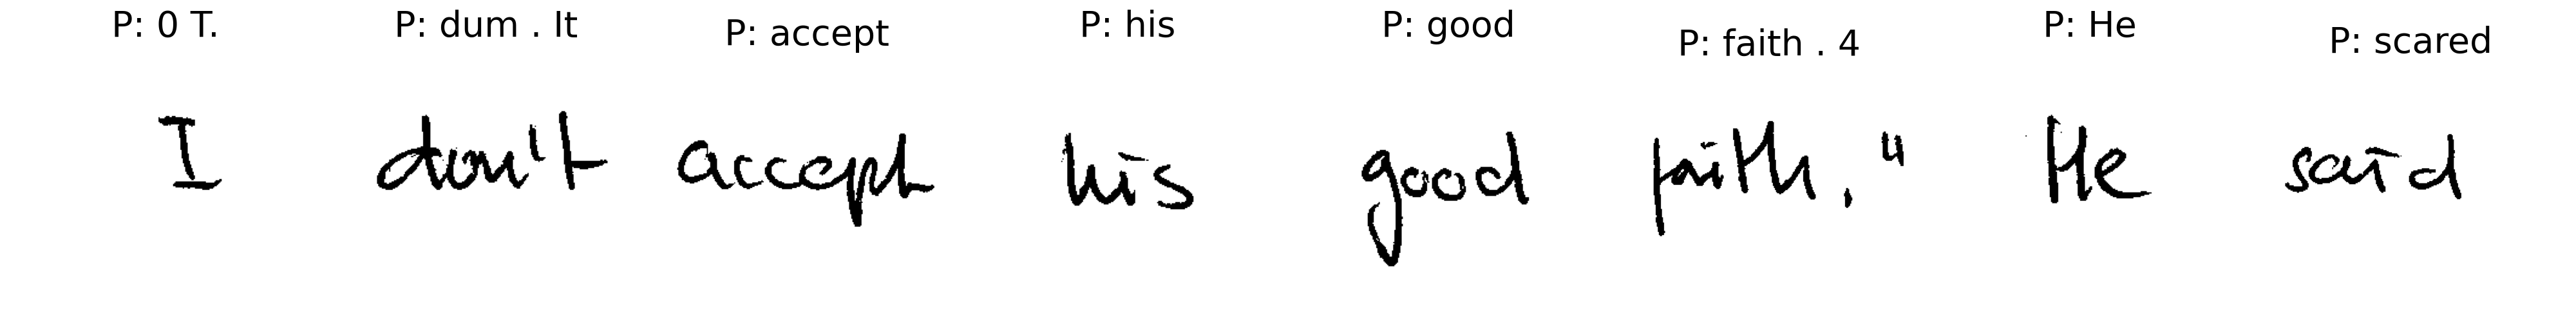 P: 0 T. P: dum . It P: accept P: his P: good P: faith . 4 P: He P: scared
I don't accept his good faith." He said